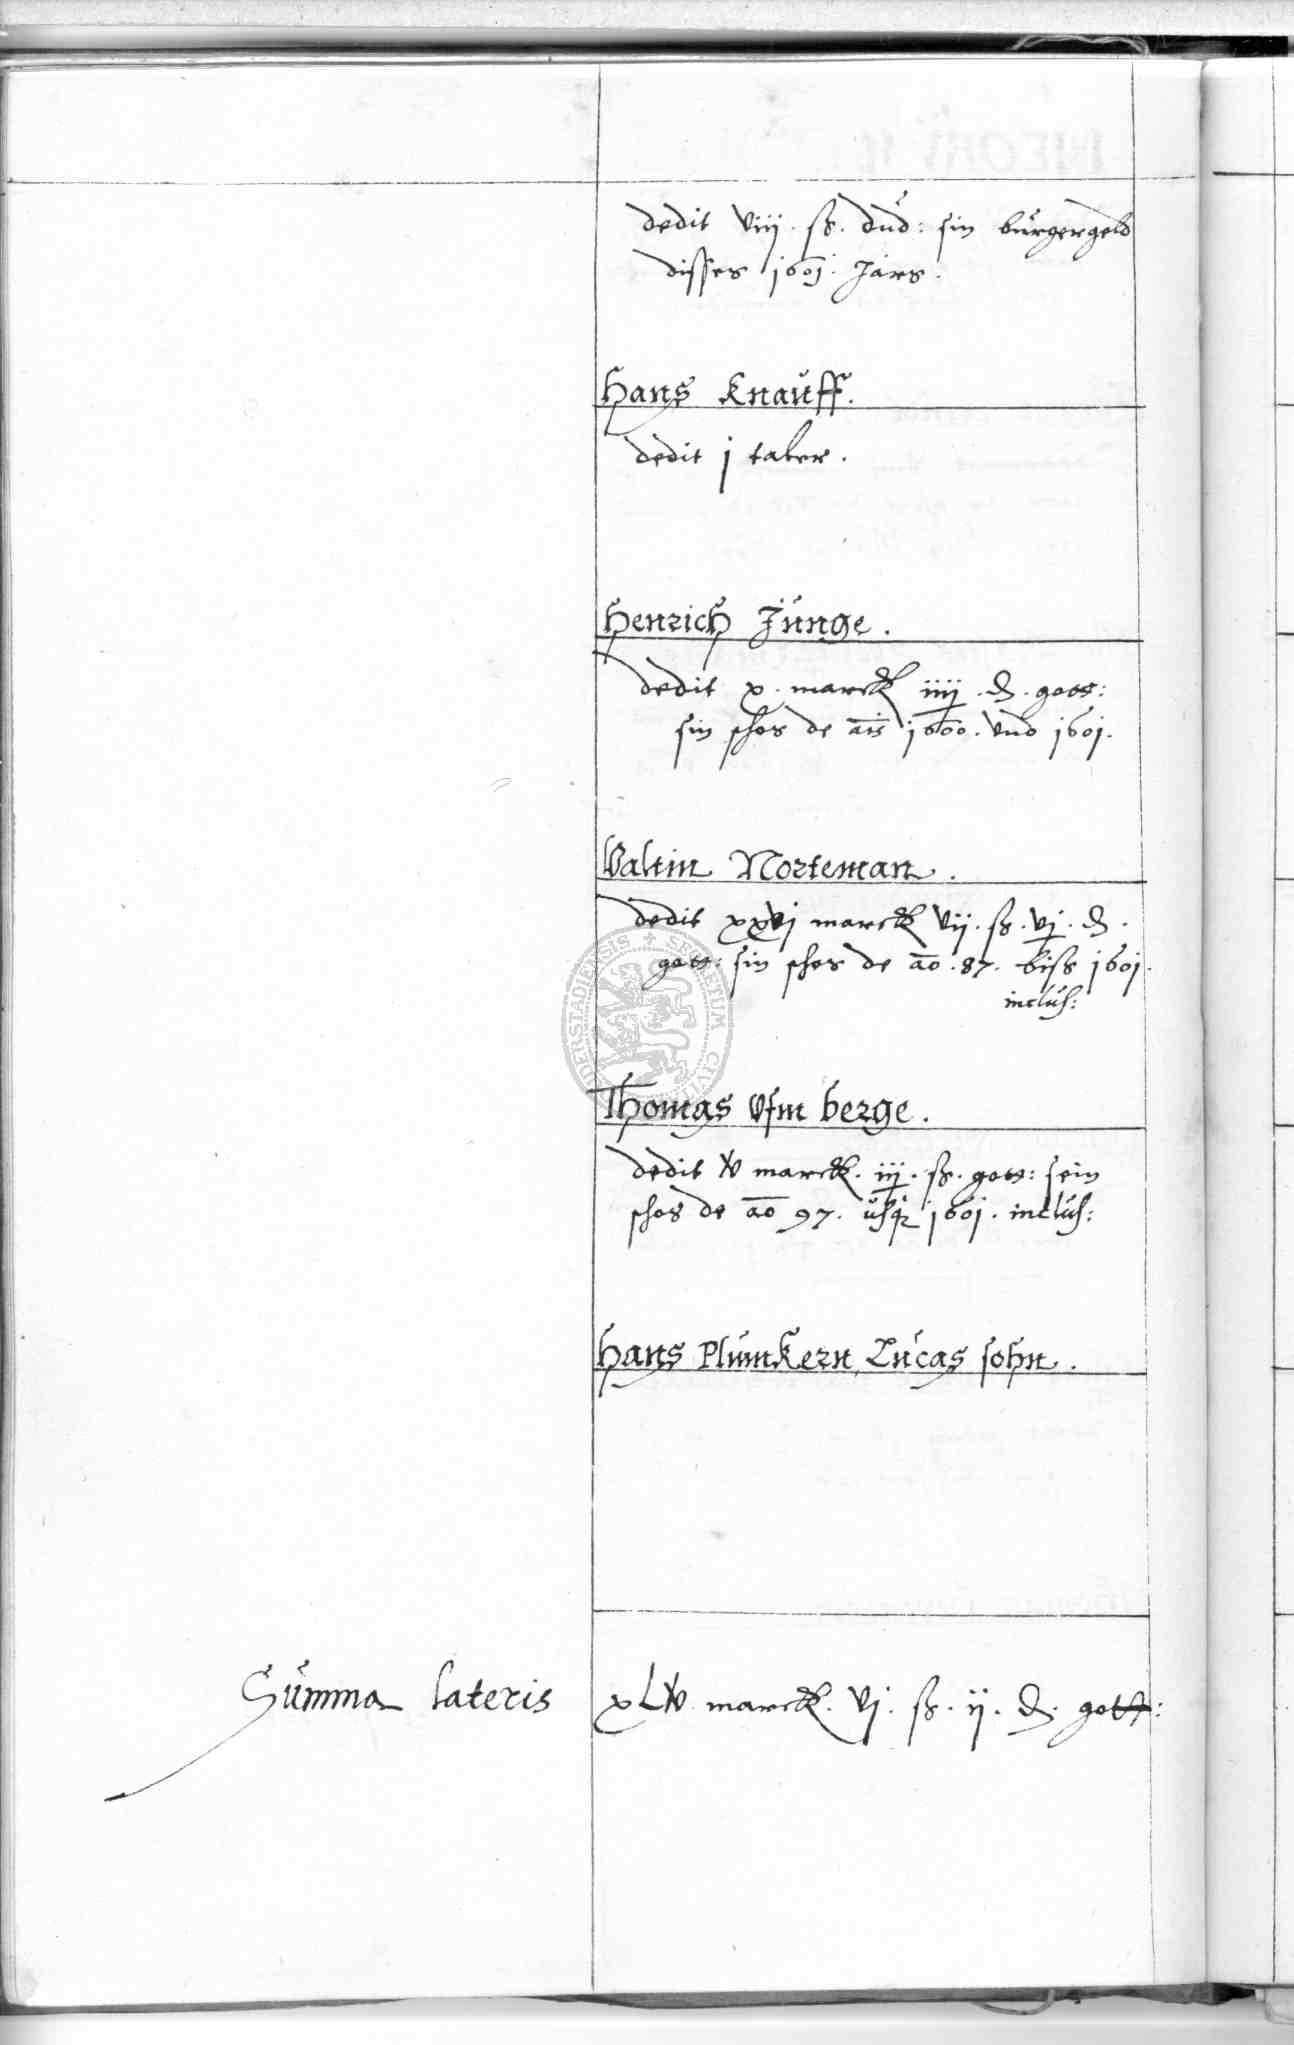 dedit viij. ß. dud: sin bürgergeld
disses 1601. Jars.
Hans Knauff.
dedit j taler.
Henrich Junge.
dedit x. marck iiij. d. gott:
sin schos de ais 1600. vnd 1601.
Valtin Norteman.
dedit xxvj marck vij. ß. vj. d.
gott: sin schos de ao. 87. biss 1601.
inclus:
Thomas Vfm berge.
dedit v marck. iij. ß. gott: sein
schos de ao 97. usq 1601. inclus:
Hans Plumkern, Lucas sohn.
Summa lateris xLv marck. vj. ß. ij. d. gott:
DERSTADIENSIS + SECRETUM CIVITA